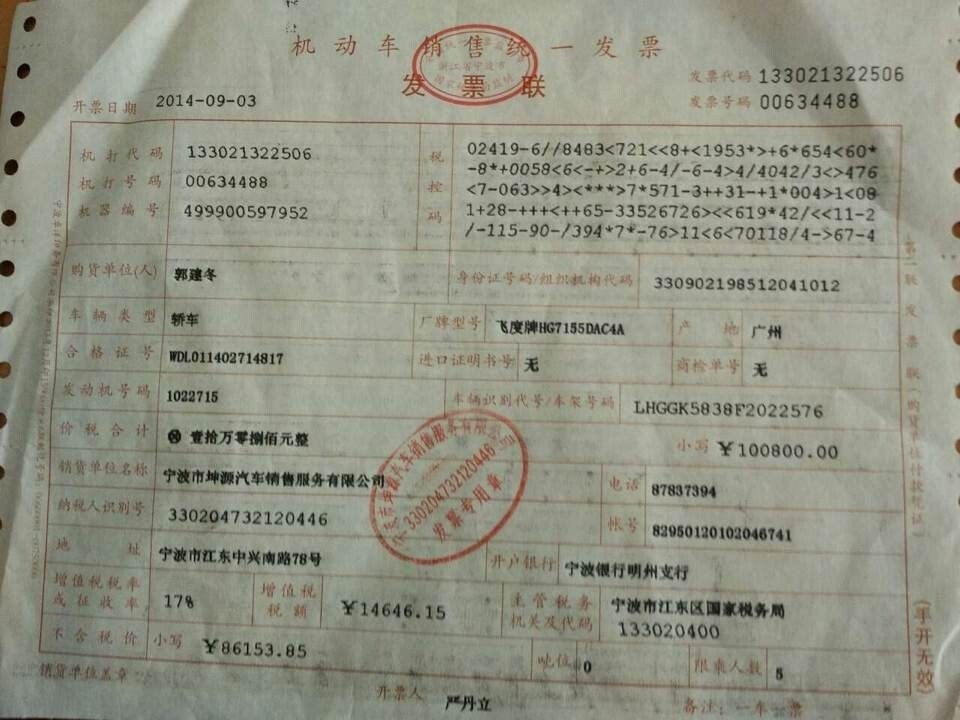 机动车销售统一发票
发票联
浙江省宁波市
发票代码 133021322506
发票号码 00634488
开票日期 2014-09-03
机打代码 133021322506
机打号码 00634488
机器编号 499900597952
税控码
02419-6//8483<721<<8+<1953*>+6*654<60*
-8*+0058<6<-+>2+6-4/-6-4>4/4042/3<>476
<7-063>>4><***>7*571-3++31-+1*004>1<08
1+28-+++<++65-33526726><<619*42/<<11-2
/-115-90-/394*7*-76>11<6<70118/4->67-4
购货单位(人) 郭建冬 身份证号码/组织机构代码 330902198512041012
车辆类型 轿车 厂牌型号 飞度牌HG7155DAC4A 产地 广州
合格证号 WDL011402714817 进口证明书号 无 商检单号 无
发动机号码 1022715 车辆识别代号/车架号码 LHGGK5838F2022576
价税合计 ⊗ 壹拾万零捌佰元整 小写 ¥100800.00
销货单位名称 宁波市坤源汽车销售服务有限公司 电话 87837394
纳税人识别号 330204732120446 帐号 82950120102046741
地址 宁波市江东中兴南路78号 开户银行 宁波银行明州支行
增值税税率或征收率 17% 增值税税额 ¥14646.15 主管税务机关及代码 宁波市江东区国家税务局
133020400
不含税价 小写 ¥86153.85 吨位 0 限乘人数 5
销货单位盖章 开票人 严丹立 备注:一车一票
330204732120446
发票专用章
第一联 发票联 购货单位付款凭证
(手开无效)